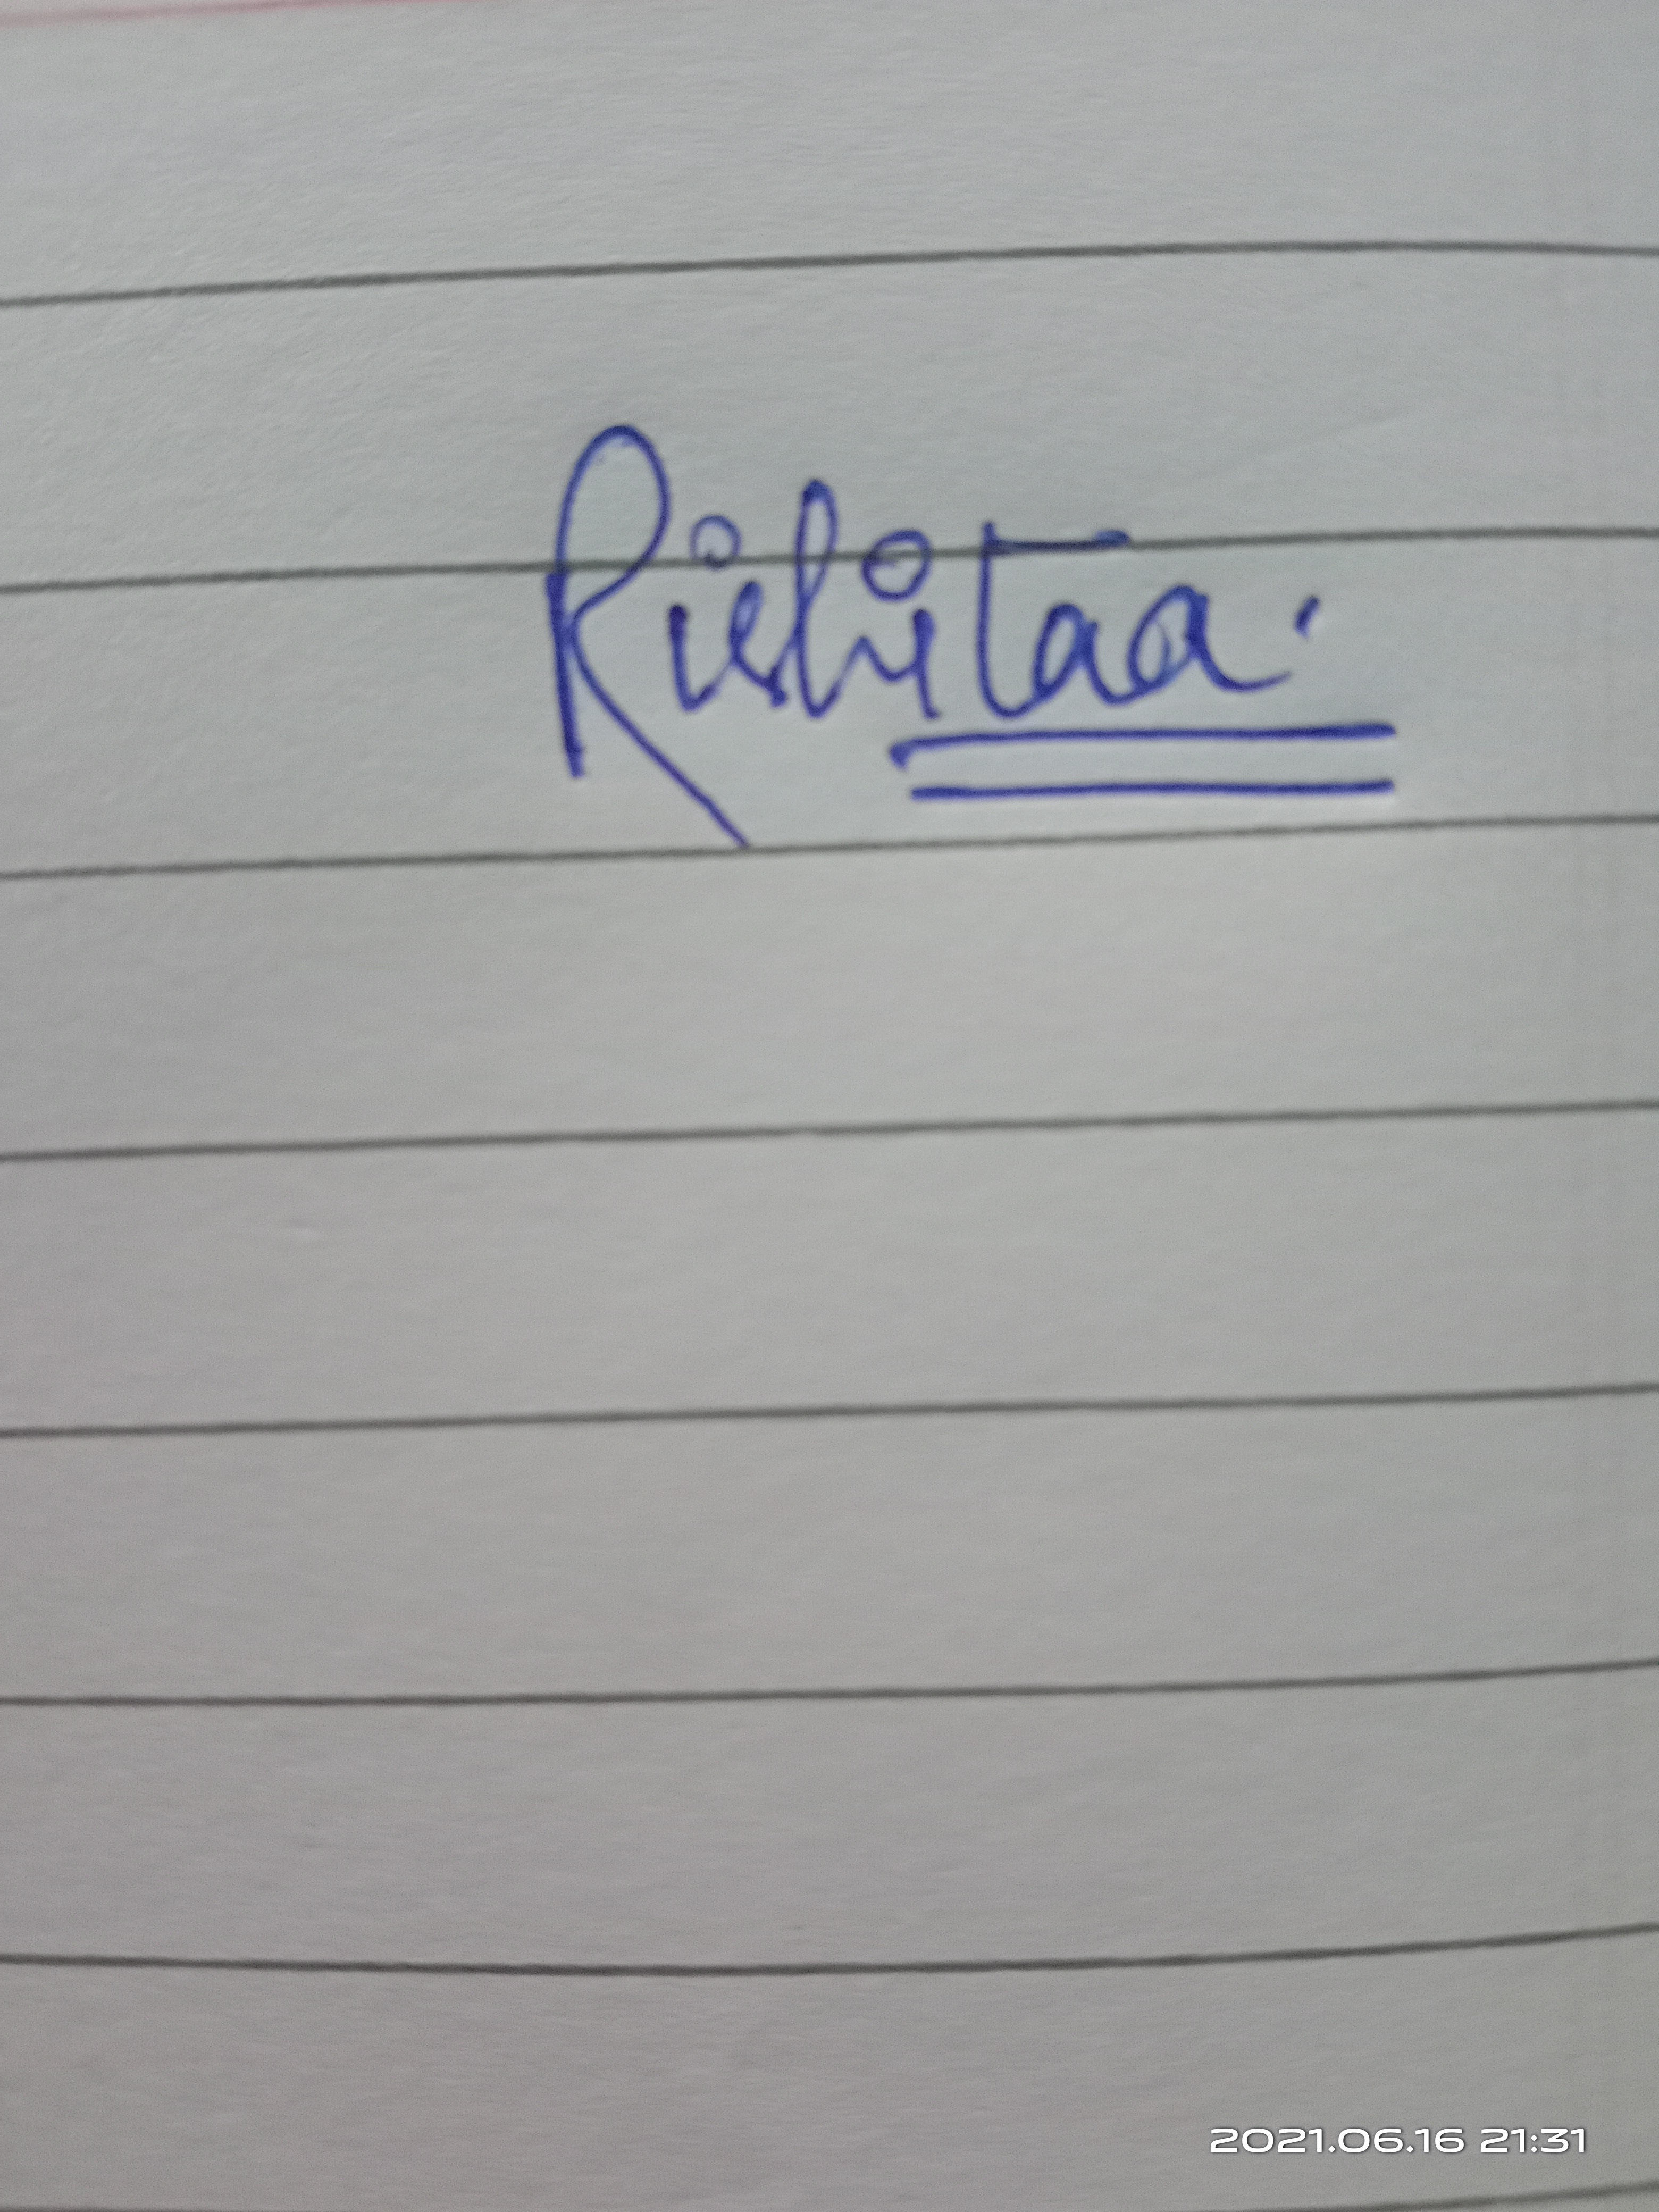 Rishitaa.
2021.06.16 21:31